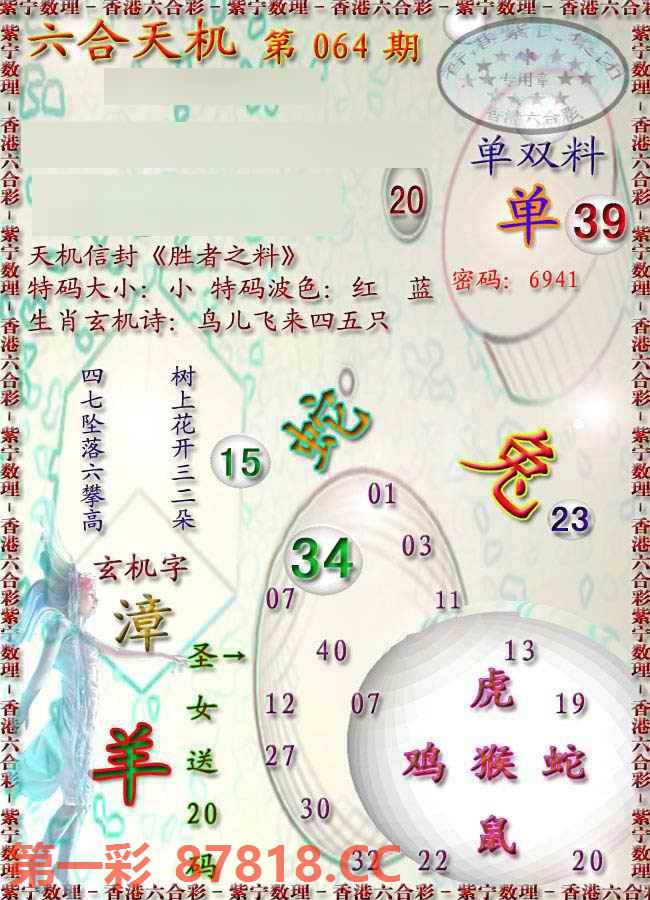 紫宁数理－香港六合彩－紫宁数理－香港六合彩－紫宁数理－香港六合彩－紫宁数理
六合天机 第 064 期
专用章
香港六合彩
单双料
单 39
20
天机信封《胜者之料》
特码大小：小 特码波色：红 蓝
密码：6941
生肖玄机诗：鸟儿飞来四五只
四七坠落六攀高
树上花开三二朵
蛇
兔
15
23
01
34
03
玄机字
漳
07
11
圣女送20码
→
40
13
虎
12
07
19
羊
27
鸡 猴 蛇
30
鼠
32
22
20
第一彩 87818.CC
紫宁数理－香港六合彩－紫宁数理－香港六合彩－紫宁数理－香港六合彩－紫宁数理